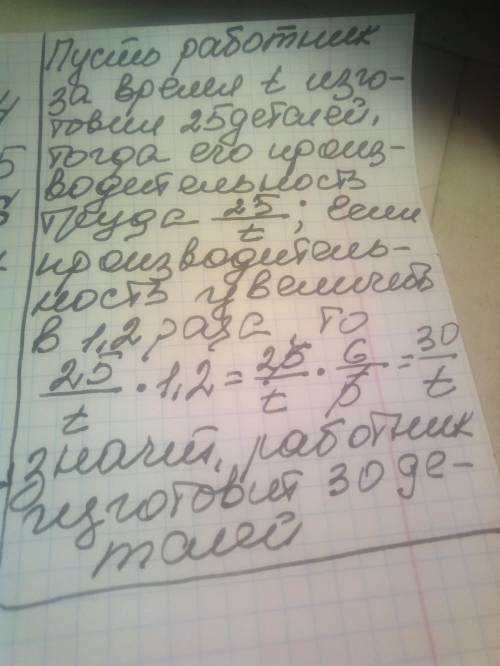 Пусть работник
за время t изго-
товил 25 деталей,
тогда его произ-
водительность
труда 25/t; если
производитель-
ность увеличить
в 1,2 раза то
25/t · 1,2 = 25/t · 6/5 = 30/t
Значит, работник
изготовит 30 де-
талей